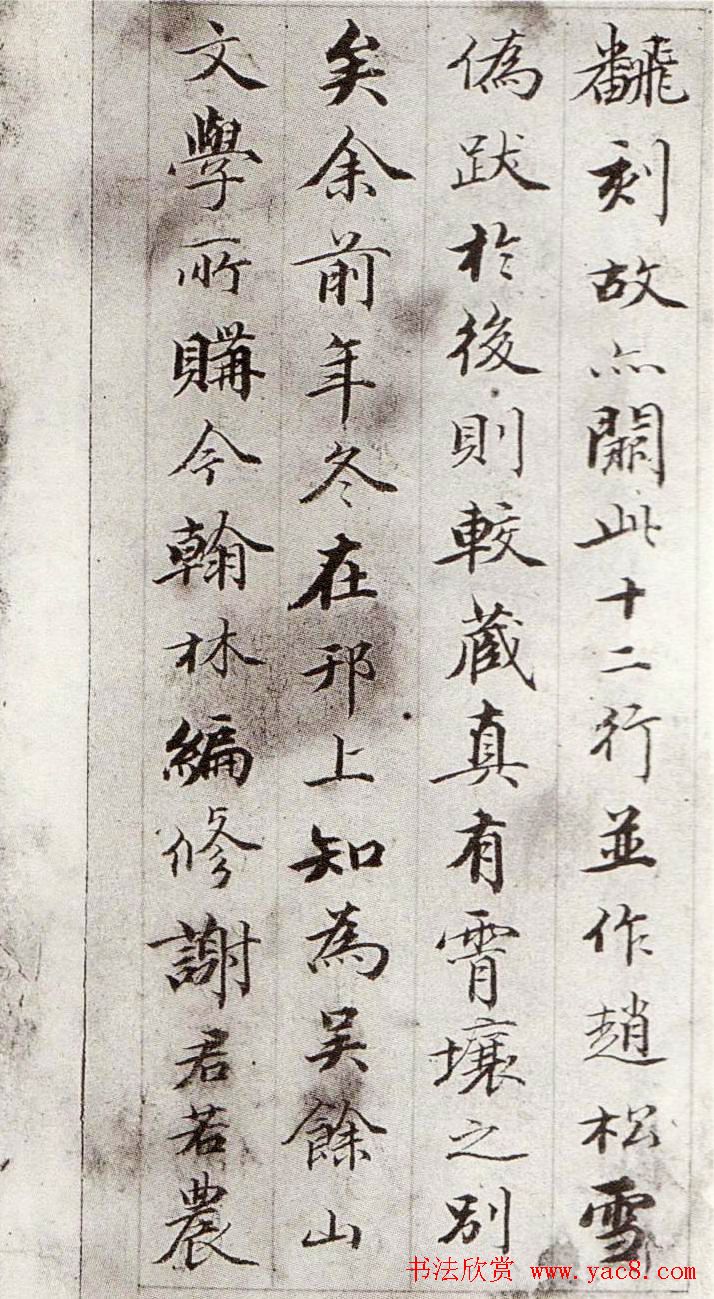 飜刻故亦闕此十二行並作趙松雪
偽跋於後則較蔵真有霄壤之別
矣余前年冬在邗上知為吴餘山
文學所購今翰林編修謝君若農
书法欣赏 www.yac8.com